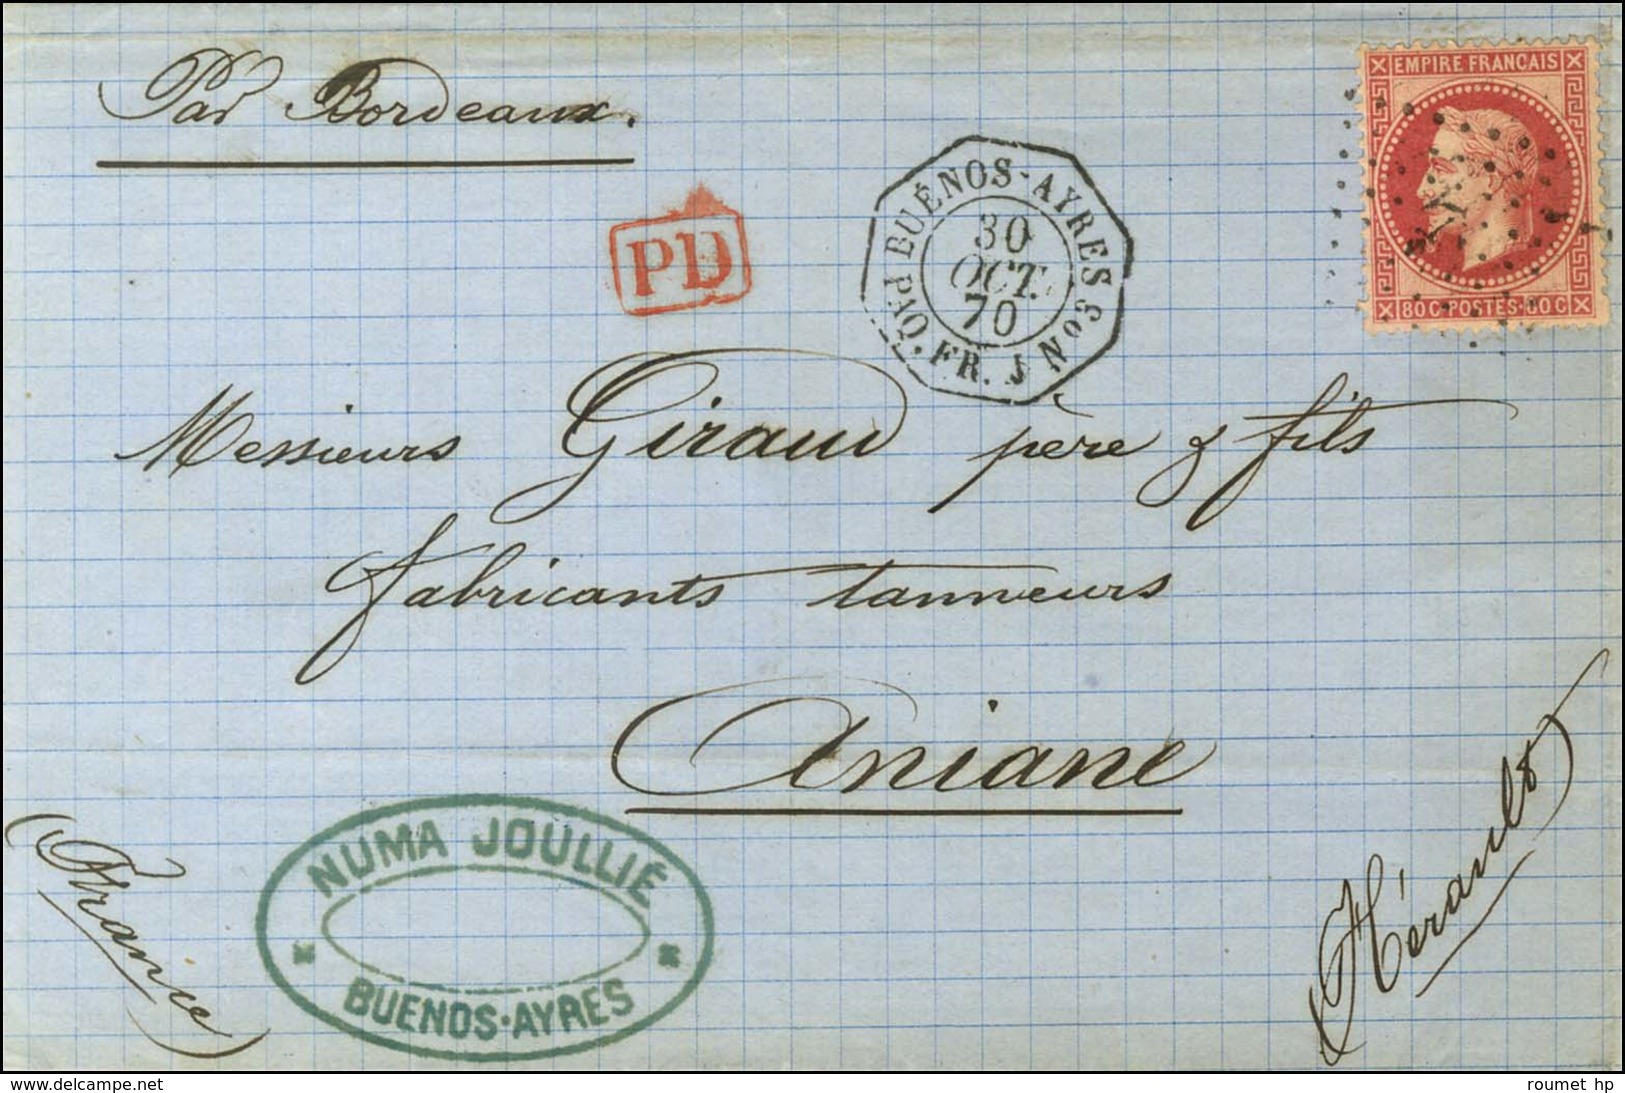 Par Bordeaux.
EMPIRE FRANÇAIS
80 C · POSTES · 80 C
PD
BUÉNOS-AYRES
30
OCT.
70
PAQ. FR. J Nº3
Messieurs Giraud père & fils
fabricants tanneurs
Aniane
(Hérault)
(France)
NUMA JOULLIÉ
BUENOS·AYRES
www.delcampe.net
roumet hp